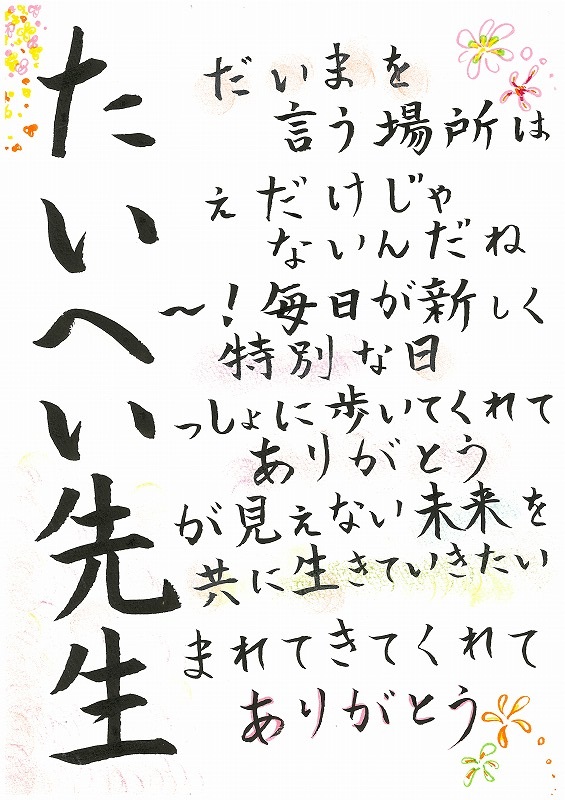 たいへい先生
だいまを
言う場所は
えだけじゃ
ないんだね
～！毎日が新しく
特別な日
っしょに歩いてくれて
ありがとう
が見えない未来を
共に生きていきたい
まれてきてくれて
ありがとう